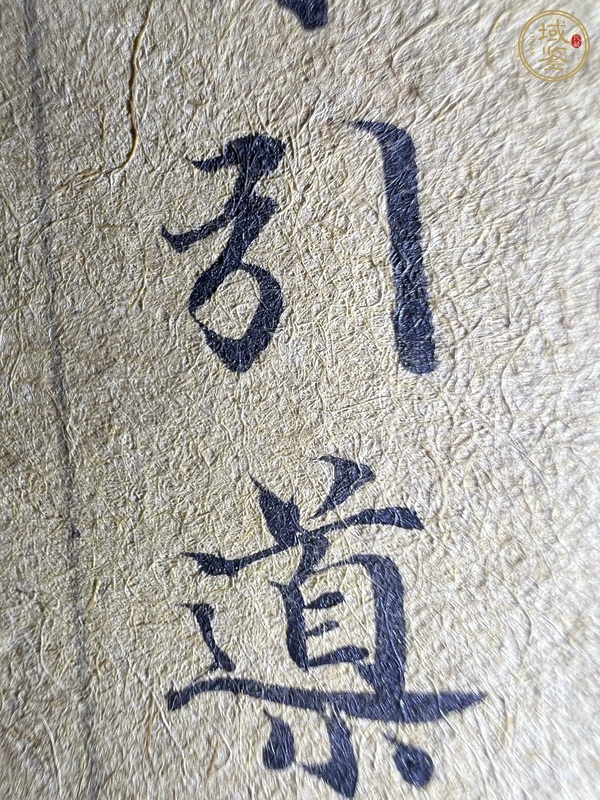 引
導
域鉴